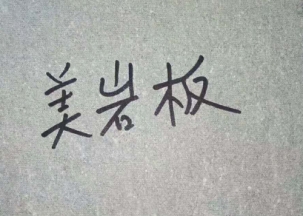 美岩板